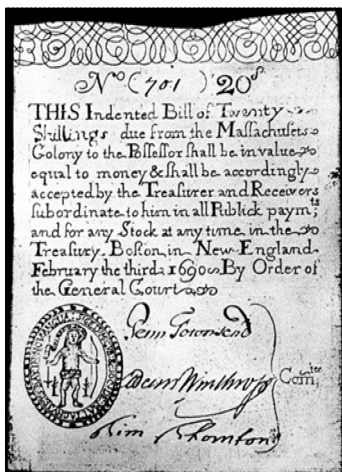 No (701) 20s
THIS Indented Bill of Twenty
Shillings due from the Massachusets
Colony to the Possessor shall be in value
equal to money & shall be accordingly
accepted by the Treasurer and Receivers
subordinate to him in all Publick paymts;
and for any Stock at any time in the
Treasury. Boston in New-England
February the third 1690 By Order of
the General Court
Penn Townsend
Adam Winthrop
Tim Thornton
Comitee